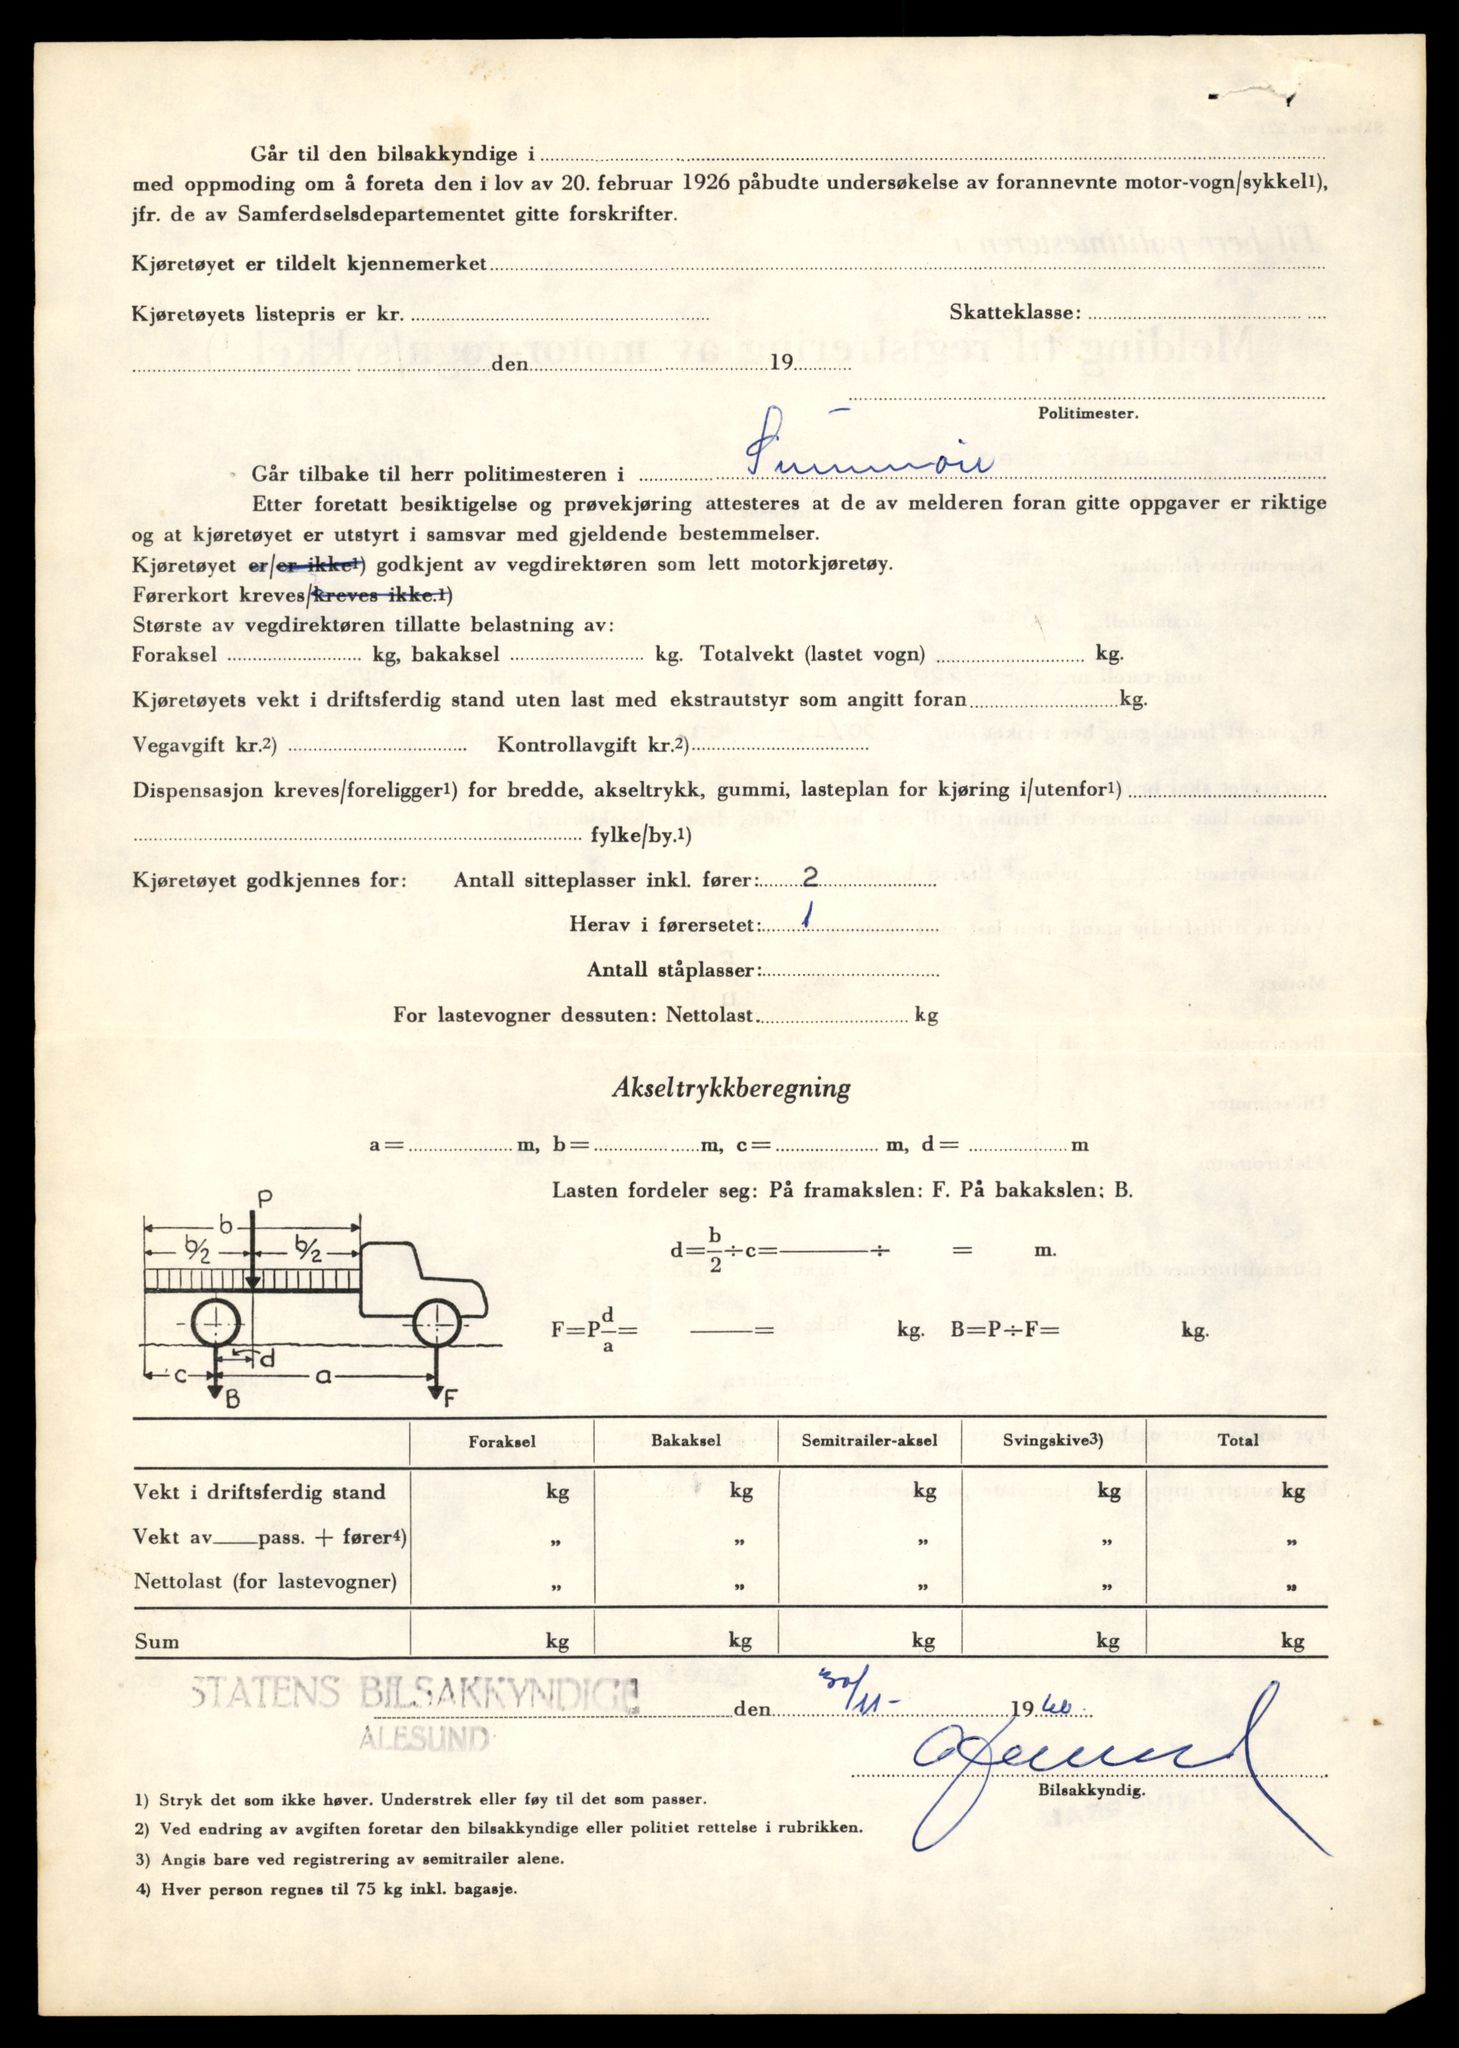 Går til den bilsakkyndige i
med oppmoding om å foreta den i lov av 20. februar 1926 påbudte undersøkelse av forannevnte motor-vogn/sykkel1),
jfr. de av Samferdselsdepartementet gitte forskrifter.
Kjøretøyet er tildelt kjennemerket
Kjøretøyets listepris er kr. Skatteklasse:
den 19
Politimester.
Går tilbake til herr politimesteren i Sunnmøre
Etter foretatt besiktigelse og prøvekjøring attesteres at de av melderen foran gitte oppgaver er riktige
og at kjøretøyet er utstyrt i samsvar med gjeldende bestemmelser.
Kjøretøyet er/er ikke1) godkjent av vegdirektøren som lett motorkjøretøy.
Førerkort kreves/kreves ikke.1)
Største av vegdirektøren tillatte belastning av:
Foraksel kg, bakaksel kg. Totalvekt (lastet vogn) kg.
Kjøretøyets vekt i driftsferdig stand uten last med ekstrautstyr som angitt foran kg.
Vegavgift kr.2) Kontrollavgift kr.2)
Dispensasjon kreves/foreligger1) for bredde, akseltrykk, gummi, lasteplan for kjøring i/utenfor1)
fylke/by.1)
Kjøretøyet godkjennes for: Antall sitteplasser inkl. fører: 2
Herav i førersetet: 1
Antall ståplasser:
For lastevogner dessuten: Nettolast kg
Akseltrykkberegning
a= m, b= m, c= m, d= m
Lasten fordeler seg: På framakslen: F. På bakakslen: B.
d=b/2÷c= ÷ = m.
F=P d/a= = kg. B=P÷F= kg.
P
b
b/2 b/2
d
c a
B F
Foraksel Bakaksel Semitrailer-aksel Svingskive3) Total
Vekt i driftsferdig stand kg kg kg kg kg
Vekt av pass. + fører4) „ „ „ „ „
Nettolast (for lastevogner) „ „ „ „ „
Sum kg kg kg kg kg
STATENS BILSAKKYNDIGE den 30/11- 1960.
ÅLESUND
Bilsakkyndig.
1) Stryk det som ikke høver. Understrek eller føy til det som passer.
2) Ved endring av avgiften foretar den bilsakkyndige eller politiet rettelse i rubrikken.
3) Angis bare ved registrering av semitrailer alene.
4) Hver person regnes til 75 kg inkl. bagasje.